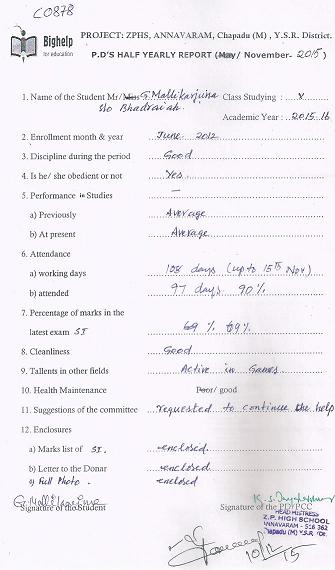 C0878
Bighelp
for education
PROJECT: ZPHS, ANNAVARAM, Chapadu (M) , Y.S.R. District.
P.D'S HALF YEARLY REPORT (May/ November- 2015)
1. Name of the Student Mr/Miss G. Mallikarjuna Class Studying : V
S/o Bhadraiah
Academic Year : 2015-16
2. Enrollment month & year June 2012
3. Discipline during the period Good
4. Is he/ she obedient or not Yes
5. Performance in Studies —
a) Previously Average
b) At present Average
6. Attendance
a) working days 108 days (up to 15th Nov)
b) attended 97 days 90%
7. Percentage of marks in the
latest exam SI 69% 69%
8. Cleanliness Good
9. Tallents in other fields Active in Games
10. Health Maintenance Poor/ good
11. Suggestions of the committee requested to continue the help
12. Enclosures
a) Marks list of SI. enclosed
b) Letter to the Donar enclosed
c) Full Photo - enclosed
G. Mallikarjuna
Signature of the Student Signature of the PD/PCC
HEAD MISTRESS
Z.P. HIGH SCHOOL
ANNAVARAM - 516 362
Chapadu (M) Y.S.R. Dt.
10/12/15